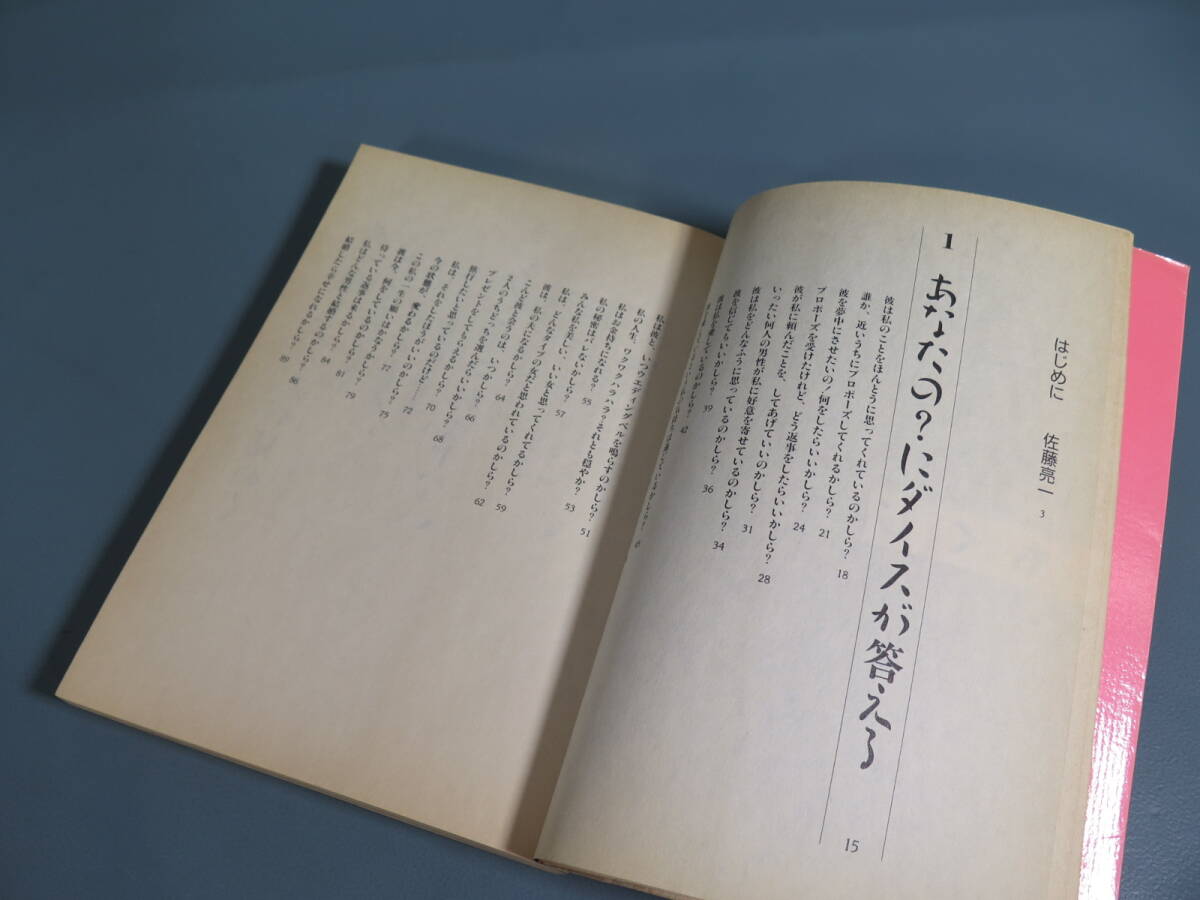 はじめに 佐藤亮一 3
1 あなたの?にダイスが答える 15
彼は私のことをほんとうに思ってくれているのかしら? 18
誰か、近いうちにプロポーズしてくれるかしら? 21
彼を夢中にさせたいの!何をしたらいいかしら? 24
プロポーズを受けたけれど、どう返事をしたらいいかしら? 28
彼が私に頼んだことを、してあげていいのかしら? 31
いったい何人の男性が私に好意を寄せているのかしら? 34
彼は私をどんなふうに思っているのかしら? 36
彼を信じてもいいかしら? 39
彼は私を愛しているのかしら? 42
私は彼と、いつウエディングベルを鳴らすのかしら? 51
私の人生、ワクワクハラハラ?それとも穏やか? 53
私はお金持ちになれる? 55
私の秘密はバレないかしら? 57
みんな私を美しい、いい女と思ってくれてるかしら? 59
私は、どんなタイプの女だと思われているのかしら? 62
彼は、私の夫になるかしら? 64
こんど彼と会うのは、いつかしら? 66
2人のうちどっちを選んだらいいかしら? 68
プレゼントをしてもらえるかしら? 70
旅行したいと思っているのだけど…… 72
私は、それをしたほうがいいのかしら? 75
今の状態が、変わるかしら? 77
この私の一生の願いはかなうかしら? 79
彼は今、何をしているのかしら? 81
待っている返事は来るかしら? 84
私はどんな男性と結婚するのかしら? 86
結婚したら幸せになれるかしら? 89